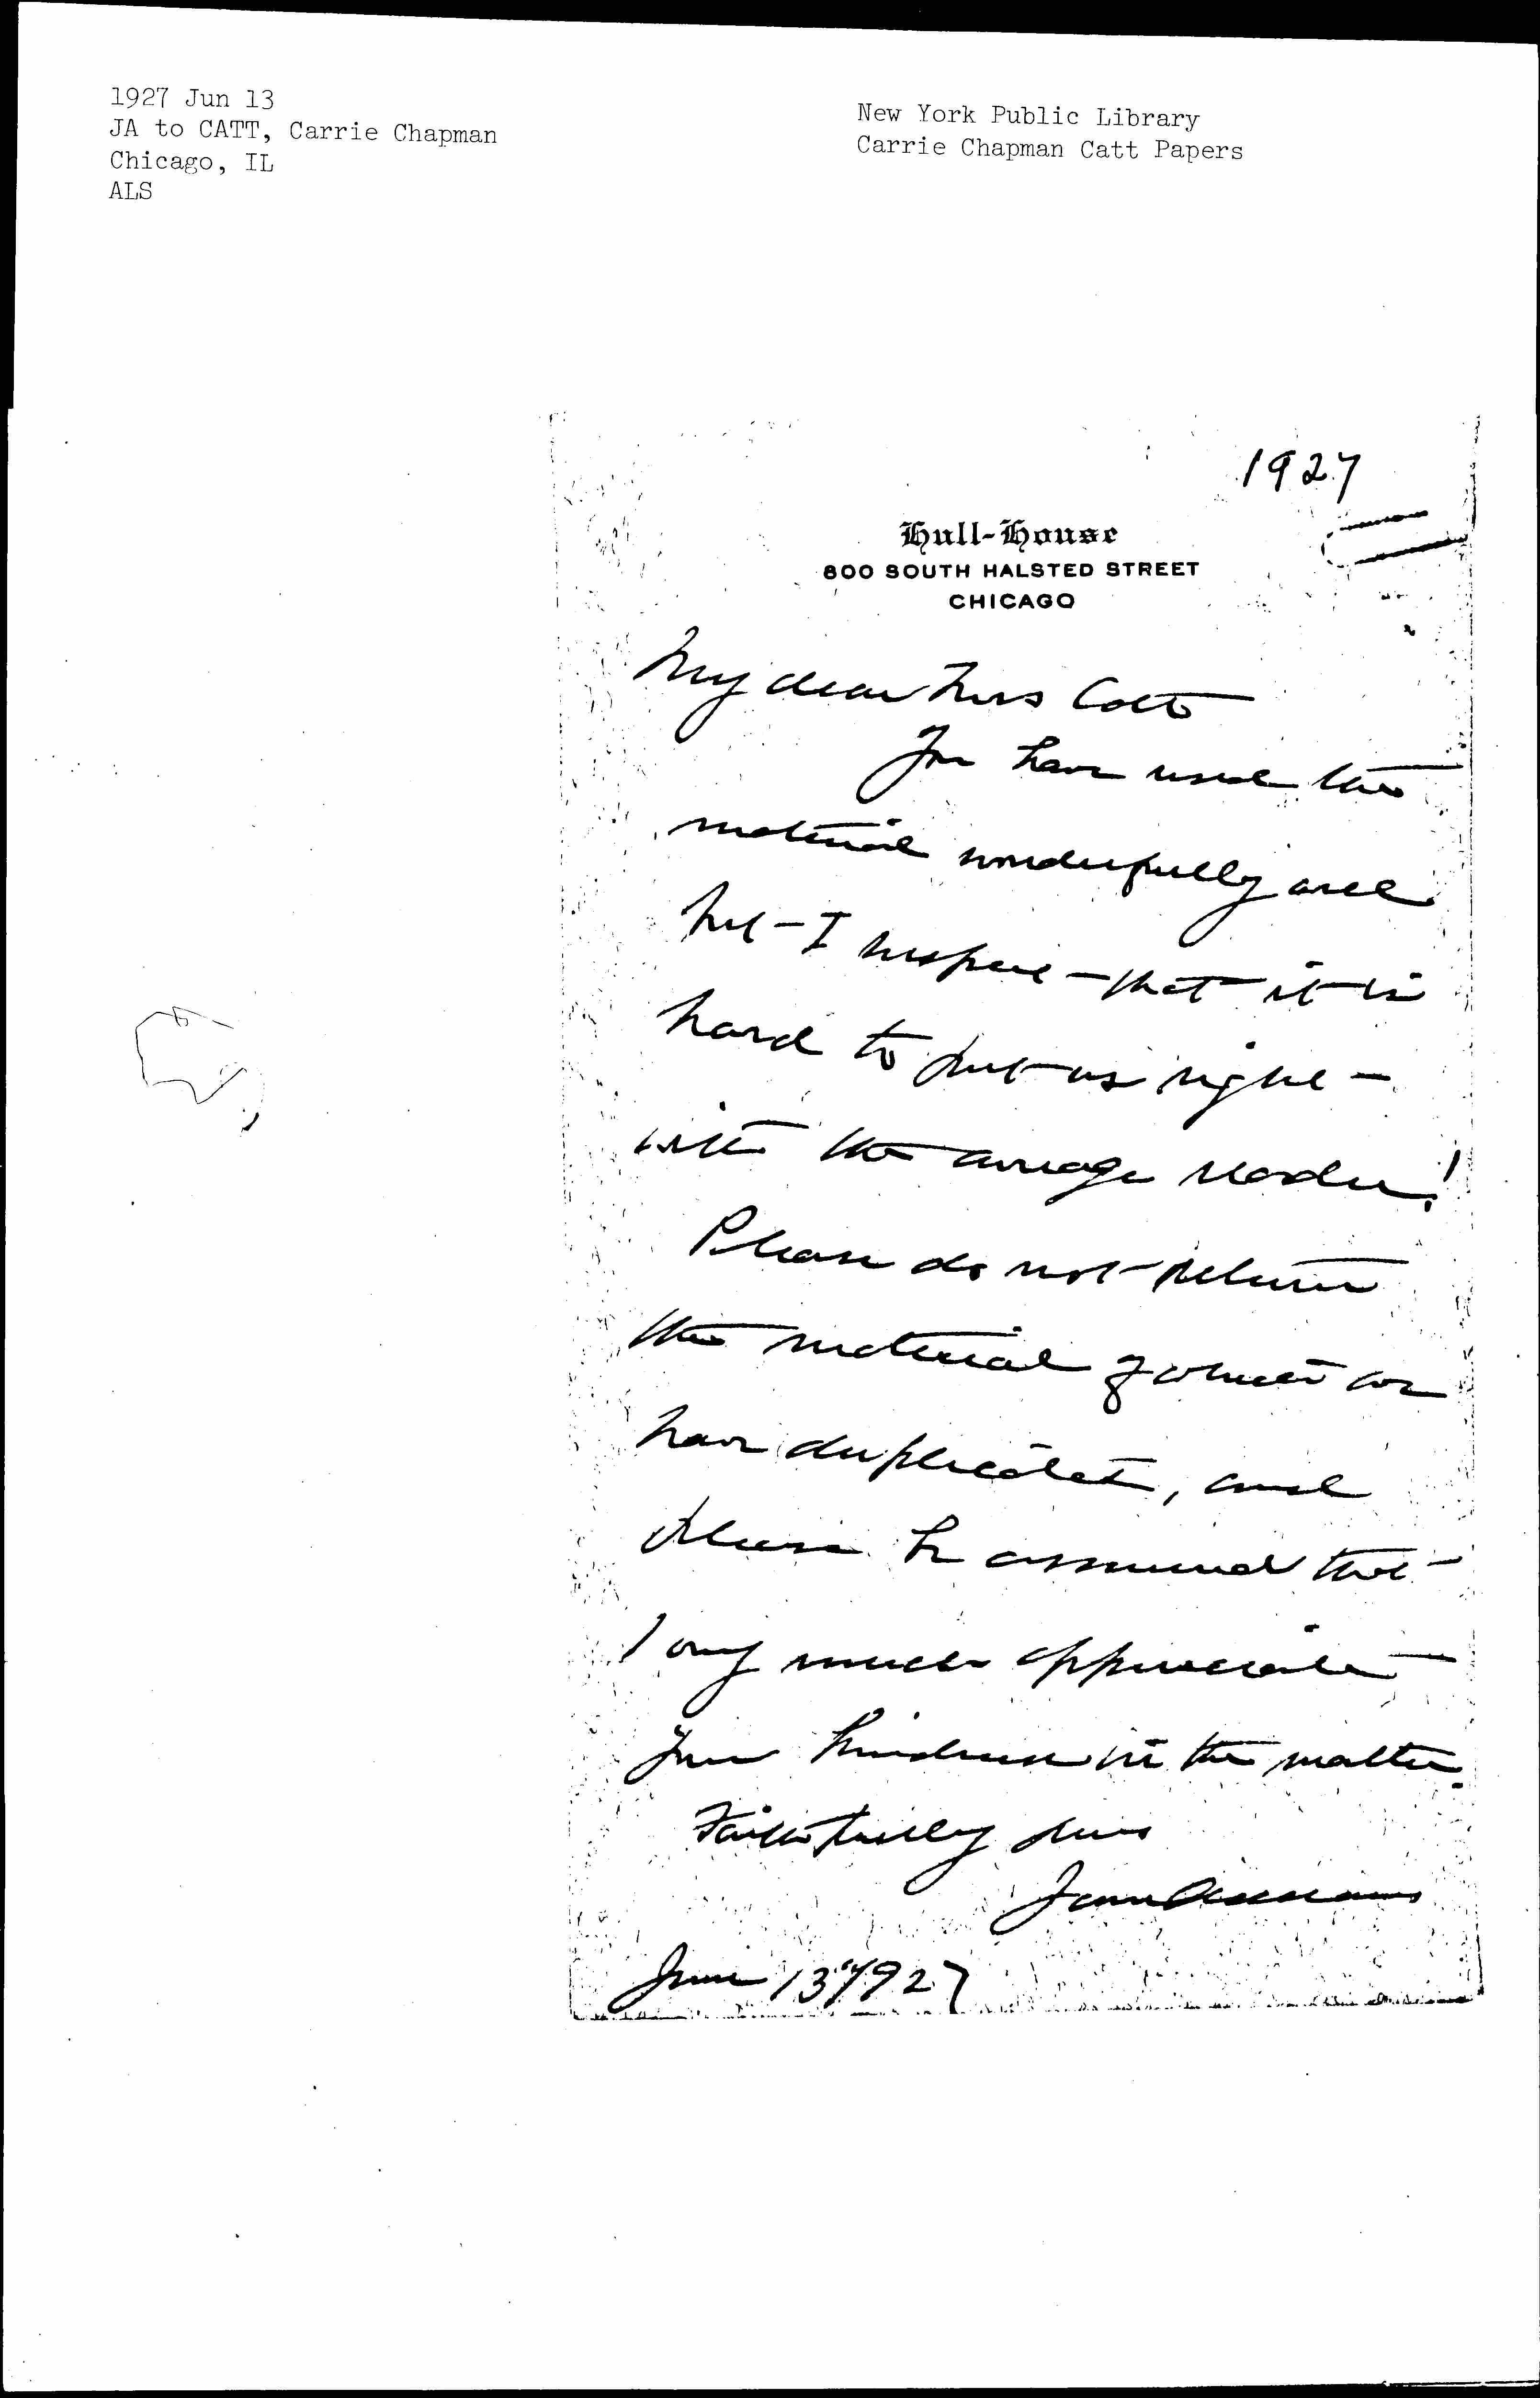 1927 Jun 13
JA to CATT, Carrie Chapman
Chicago, IL
ALS
New York Public Library
Carrie Chapman Catt Papers
1927
Hull-House
800 SOUTH HALSTED STREET
CHICAGO
My dear Mrs Catt
You have used the
material wonderfully well
but I suspect that it is
hard to put us right
with the average reader!
Please do not return
the material of which we
have duplicates, and
please be assured that
I very much appreciate
your kindness in the matter.
Faithfully yours
Jane Addams
June 13" 1927